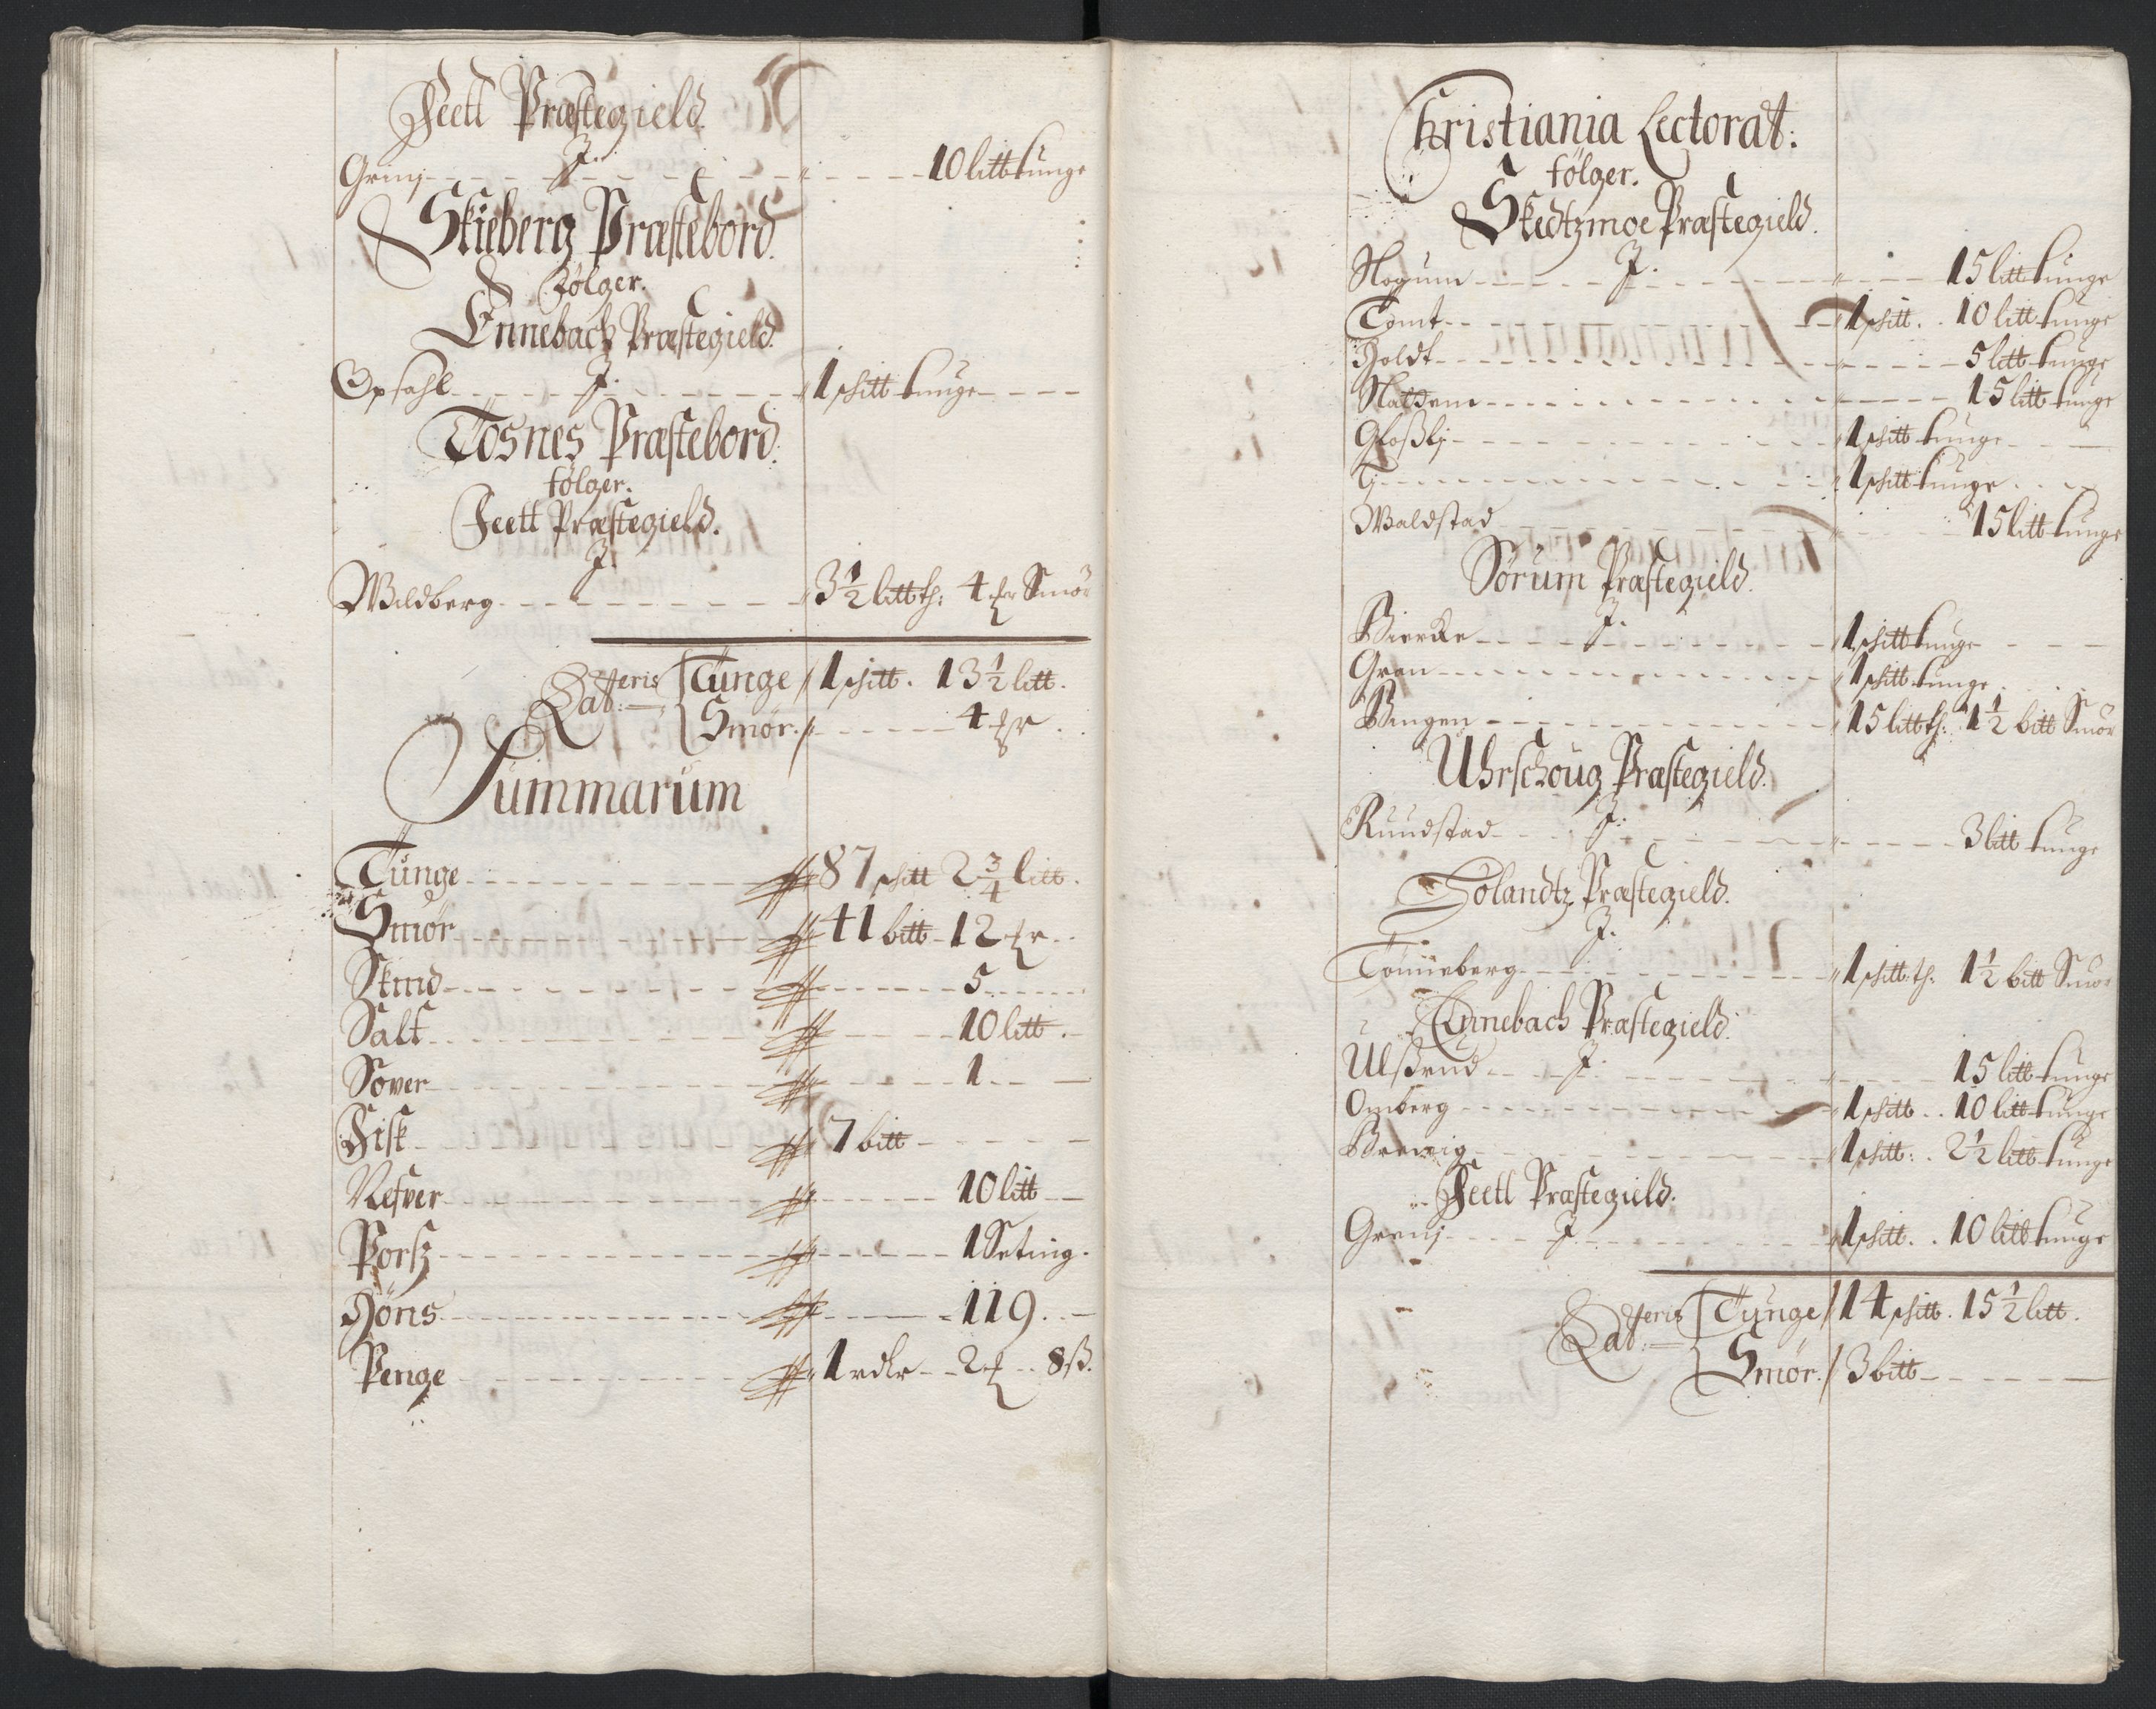 Feetl Præstegield.
J.
Grinj 10 litt tunge
Skieberg Præstebord.
følger.
Ennebach Præstegield.
J.
Opsahl 1 schtt tunge
Tosnes Præstebord.
følger.
Feetl Præstegield.
J.
Wildberg 3½ litt th: 4 Smör
Lateris Tunge 1 schtt. 13½ litt.
Smör.
Summarum
Tunge 87 schtt 2¾ litt.
Smör 41 bitt 12
Skind 5
Salt 10 litt.
Sover 1
Fisk 7 bitt
Nefver 10 litt
Porsz 1 Seting.
Höns 119.
Penge 1 rdlr 2 8 ß.
Christiania Lectorat:
følger.
Skedtzmoe Præstegield.
J.
Nogum 15 litt tunge
Tomt 1 schtt. 10 litt tunge
Holdt 5 litt tunge
15 litt tunge
Gloßlj 1 schtt tunge
Tj 1 schtt tunge
Waldstad 15 litt tunge
Sörum Præstegield.
J.
Bierke 1 schtt tunge
Gran 1 schtt tunge
Bingen 15 litt th: 1½ bitt Smör
Uhrschoug Præstegield.
J.
Rundstad 3 litt tunge
Hölandtz Præstegield.
J.
Tönneberg 1 schtt th: 1½ bitt Smör
Ennebach Præstegield.
J.
Ulßrud 15 litt tunge
Omberg 1 schtt. 10 litt tunge
Brevig 1 schtt: 2½ litt tunge
Feetl Præstegield.
J
Grenj 1 schtt. 10 litt tunge
Lateris Tunge 14 schtt. 15½ litt.
Smör. 3 bitt